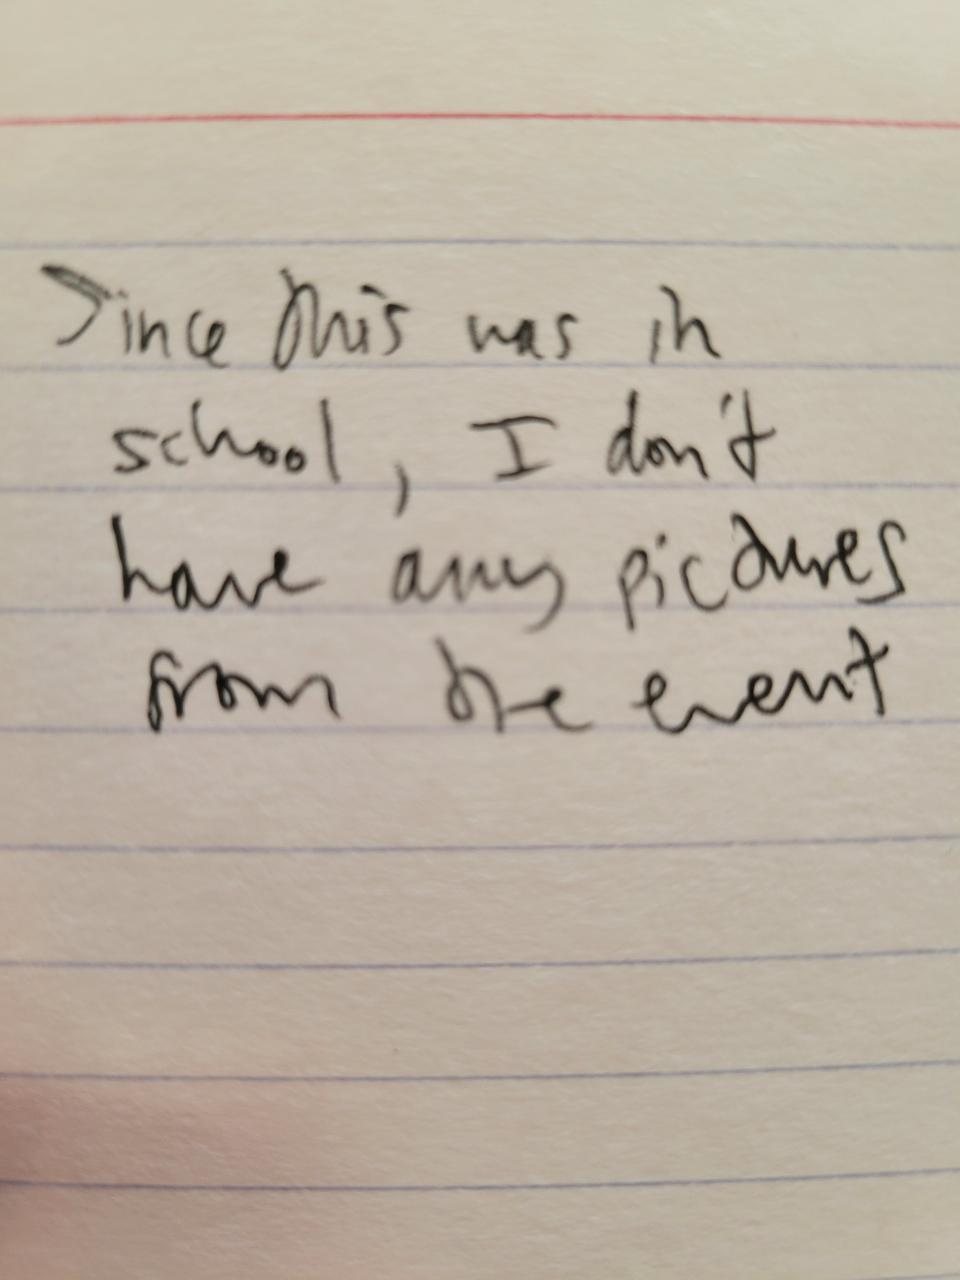 Since this was in
school, I don't
have any pictures
from the event